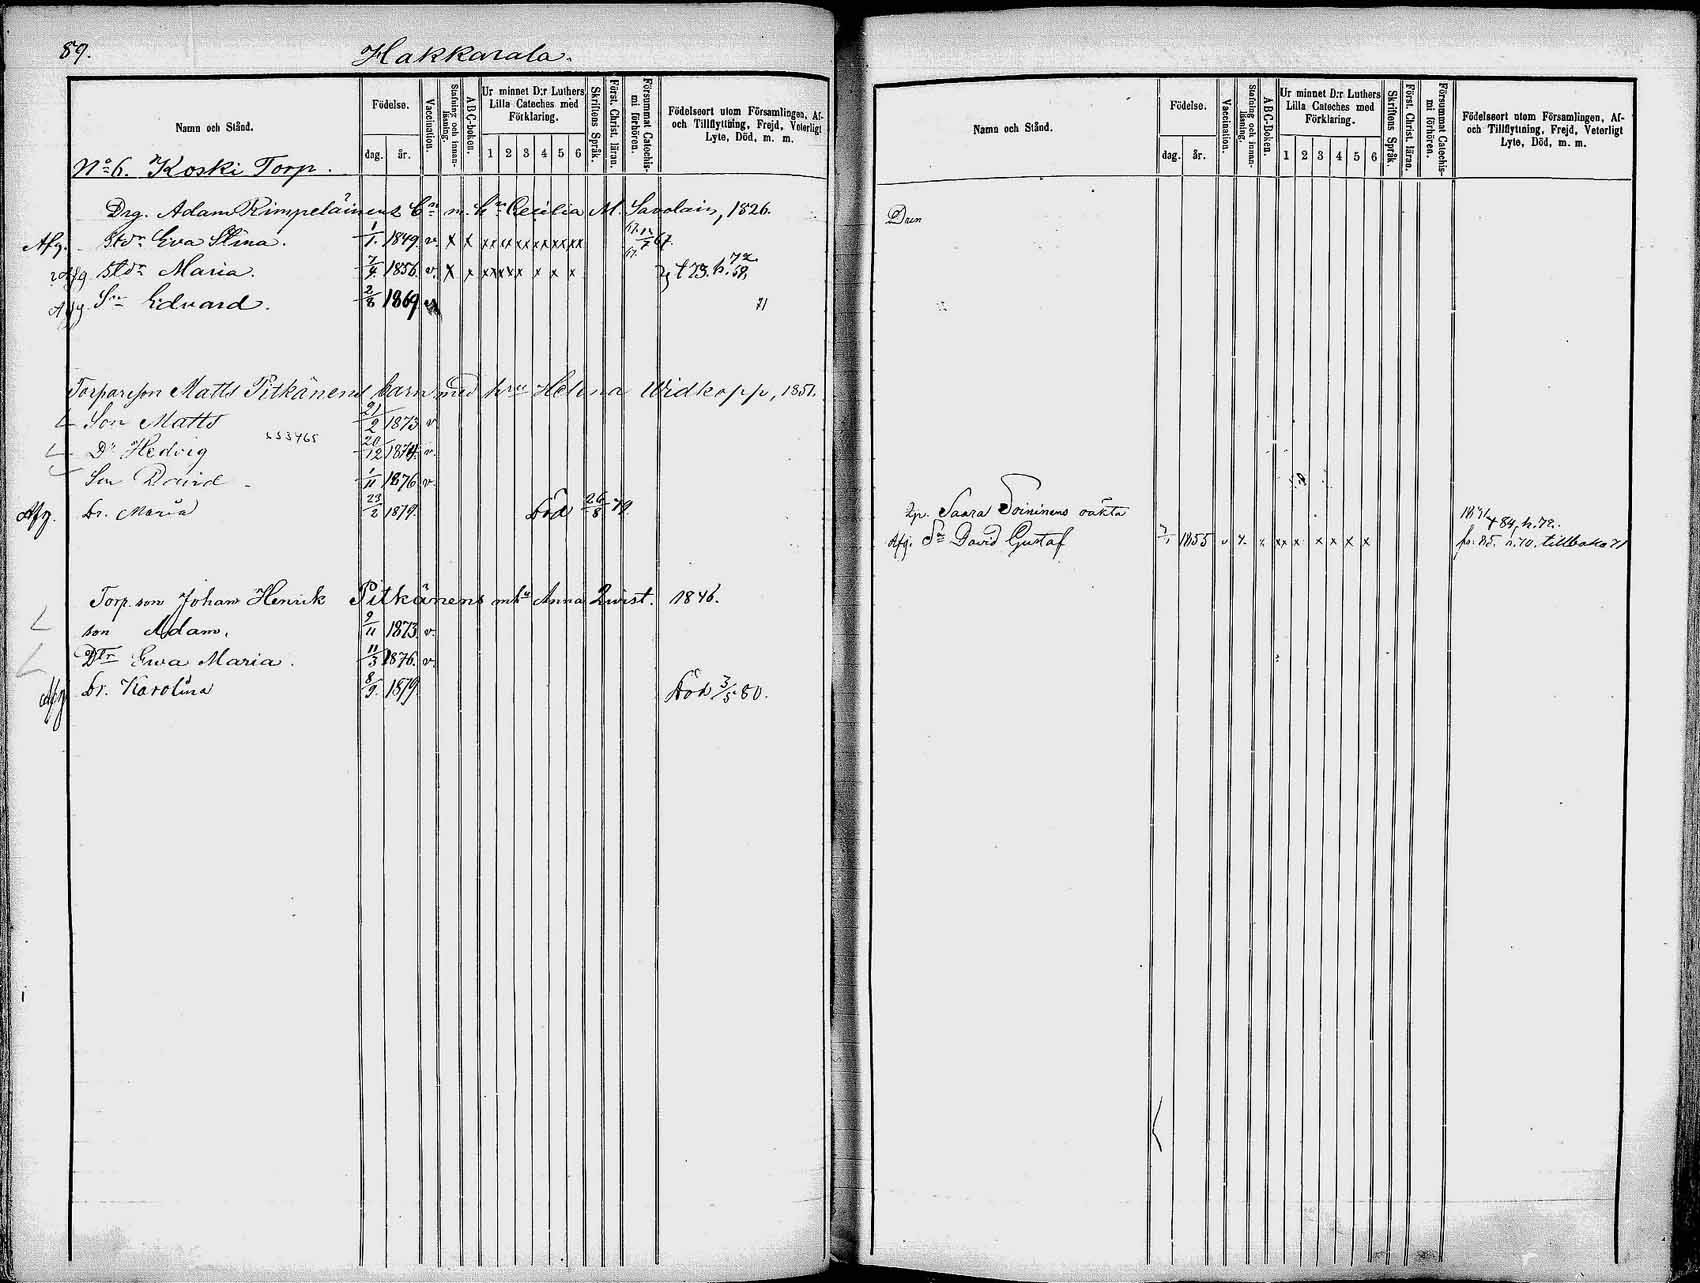 89.
Hakkarala.
Namn och Stånd.
Födelse.
dag. år.
Vaccination.
Stafning och innan-läsning.
ABC-boken.
Ur minnet D:r Luthers Lilla Cateches med Förklaring.
1 2 3 4 5 6
Skriftens Språk.
Först. Christ. läran.
Försummat Catechismi förhören.
Födelseort utom Församlingen, Af-
och Tillflyttning, Frejd, Veterligt
Lyte, Död, m. m.
No 6. Koski Torp.
Drg. Adam Rimpeläinens Bn m. hu Cecilia M. Savolain, 1826.
Afg. Stdr Eva Stina. 1/1. 1849. v. x x xx xx xx xx xx xx
Afg Stdr Maria. 7/4. 1856. v. x x xx xx x x x x † 73. h. 58, 72
Afg. Sn Edvard. 2/8 1869 v 71
Torpareson Matts Pitkänens barn med hru Helena Widkopp, 1851.
Son Matts 21/2 1873 v
Dr Hedvig 20/12 1874. v.
Son David 1/11 1876 v.
Afg. Dr. Maria 23/2 1879. Död 26/8 79.
Torp. son Johan Henrik Pitkänens m hu Anna Qwist. 1846.
son Adam. 9/11 1873 v.
Dtr Ewa Maria. 11/3 1876. v.
Afg Dr. Karolina 8/9. 1879 Död 3/5 80.
Namn och Stånd.
Födelse.
dag. år.
Vaccination.
Stafning och innan-läsning.
ABC-boken.
Ur minnet D:r Luthers Lilla Cateches med Förklaring.
1 2 3 4 5 6
Skriftens Språk.
Först. Christ. läran.
Försummat Catechismi förhören.
Födelseort utom Församlingen, Af-
och Tillflyttning, Frejd, Veterligt
Lyte, Död, m. m.
Saara Toininens oäkta
Afg. Sn David Gustaf 1855 v x. x xx x x x x x tillbaka 71